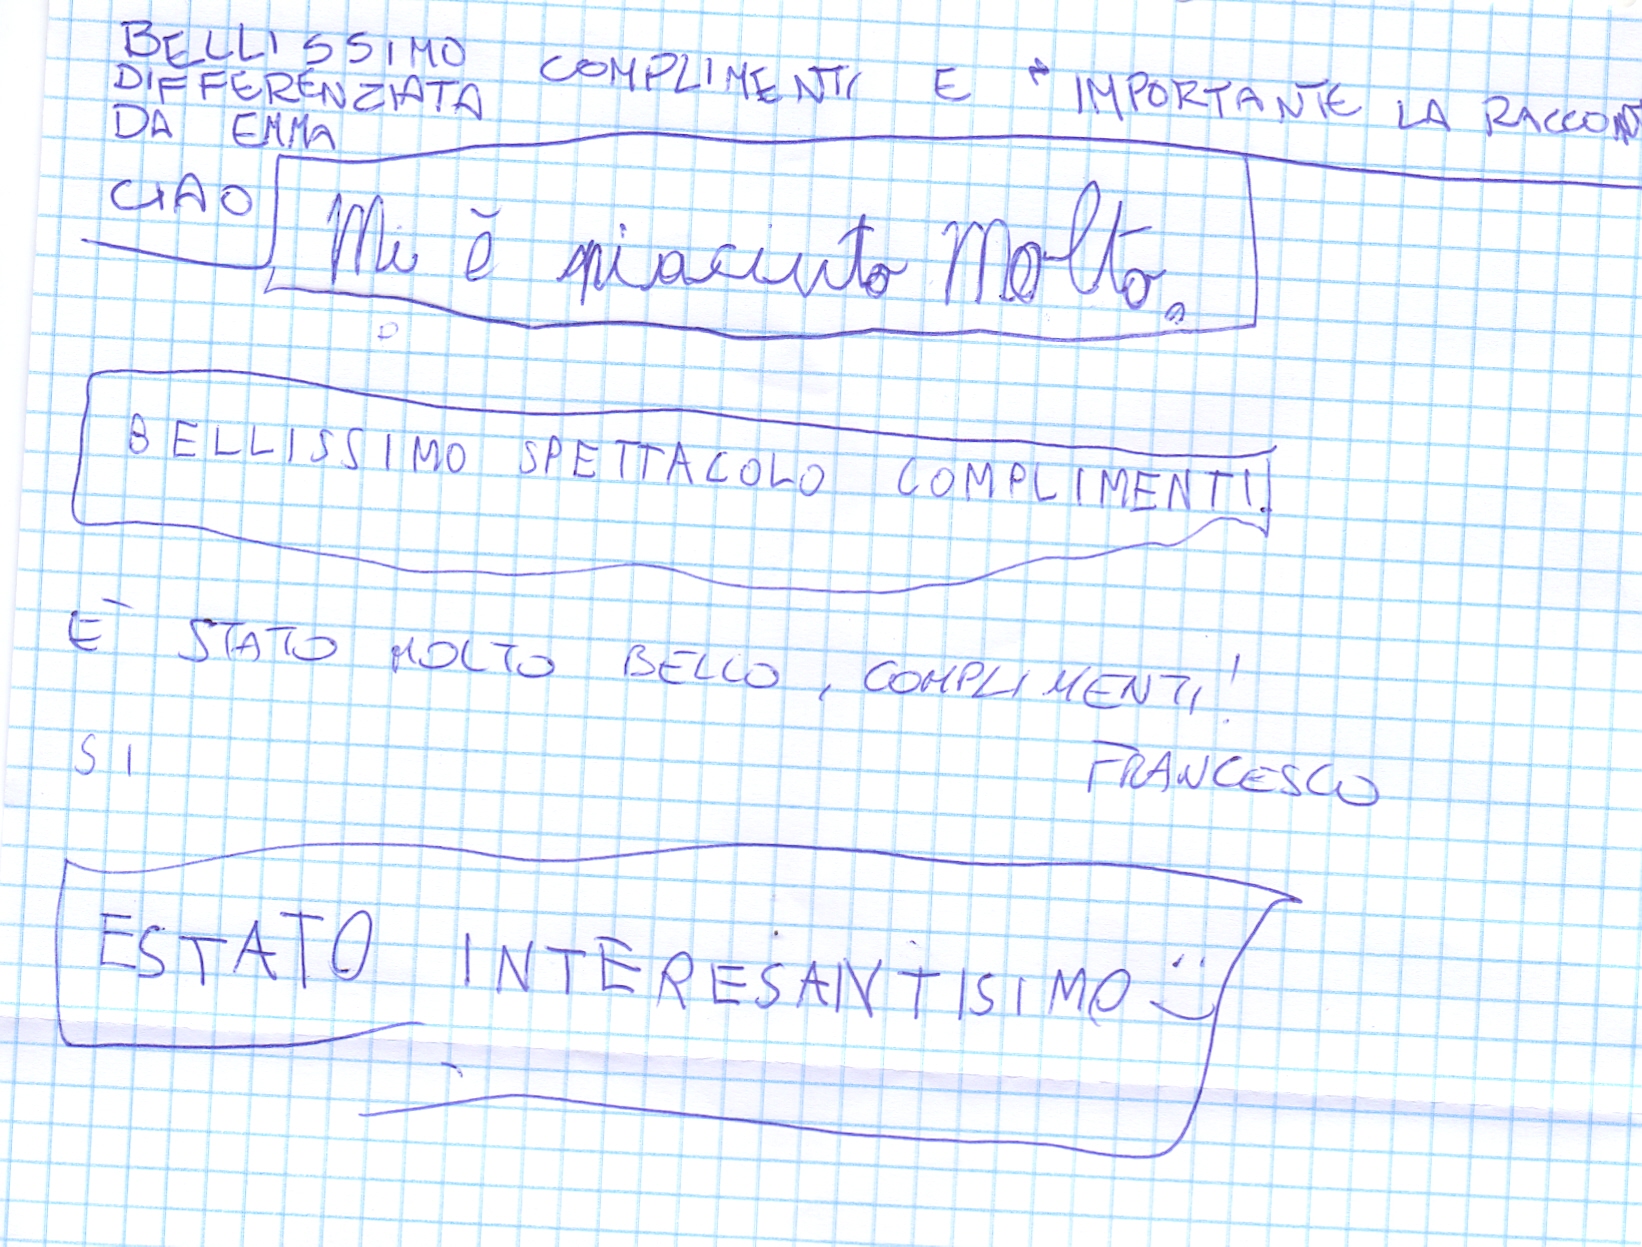 BELLISSIMO COMPLIMENTI E IMPORTANTE LA
DIFFERENZIATA
DA EMMA
CIAO
Mi è piaciuto Molto.
BELLISSIMO SPETTACOLO COMPLIMENTI!
È STATO MOLTO BELLO, COMPLIMENTI!
SI
FRANCESCO
ESTATO INTERESANTISIMO :)